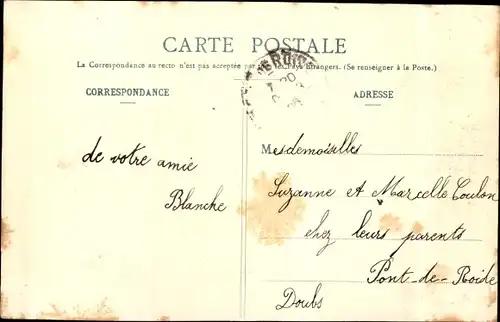 CARTE POSTALE
La Correspondance au recto n'est pas acceptée par Pays Étrangers. (Se renseigner à la Poste.)
CORRESPONDANCE
ADRESSE
de votre amie
Blanche
Mesdemoiselles
Suzanne et Marcelle Coulon
chez leurs parents
Pont-de-Roide
Doubs